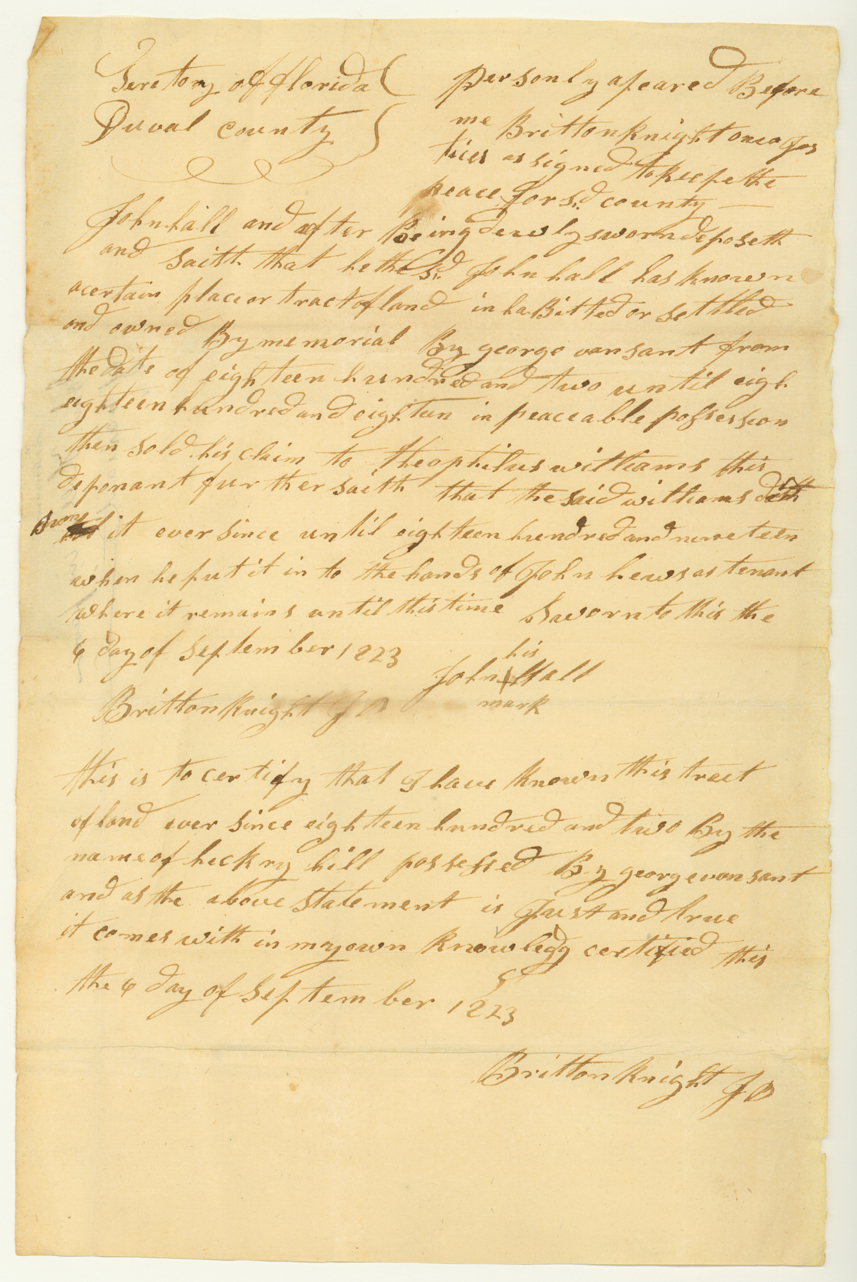 Teretory of florida
Duval county
personly apeared Before
me Britton Knight one a Jos
tics assigned to keepe the
peace for sd county
John hall and after Being dewly sworn deposeth
and saith that he the sd John hall has known
a certain place or tract of land in ha Bitted or settled
and owned By memorial By george van sant from
the date of eighteen hundred and two until eigh
eighteen hundred and eighteen in peaceable possession
then sold his claim to Theophilus williams this
deponant further saith that the said williams
it ever since until eighteen hundred and nineteen
when he put it in to the hands of John hews as tenant
where it remains until this time Saworn to this the
6 day of September 1823
his
John + Hall
mark
Britton Knight J P
this is to certify that I have known this trect
of land ever since eighteen hundred and two By the
name of heckry hill possessed By george van sant
and as the above statement is Just and true
it comes with in my own knowledg certified this
the 6 day of September 1823
Britton Knight J P